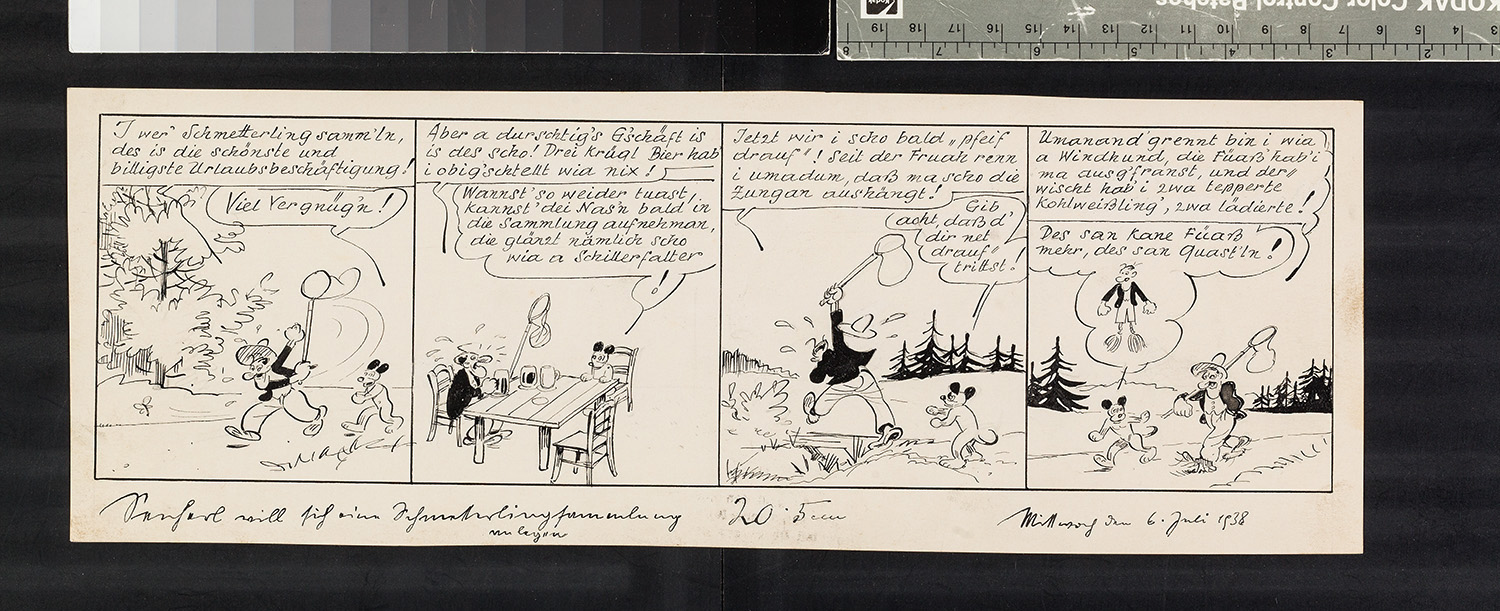 KODAK Color Control Patches
Kodak
19 18 17 16 15 14 13 12 11 10 9 8 7 6 5 4 3
8 7 6 5 4 3 2
I wer' Schmetterling samm'ln,
des is die schönste und
billigste Urlaubsbeschäftigung!
Viel Vergnüg'n!
Aber a durschtig's G'schäft is
is des scho! Drei Krügl Bier hab'
i obig'schtellt wia nix!
Wannst' so weider tuast,
kannst' dei Nas'n bald in
die Sammlung aufnehman,
die glänzt nämlich scho
wia a Schillerfalter
!
Jetzt wir i scho bald „pfeif
drauf"! Seit der Fruah renn
i umadum, daß ma scho die
Zungan aushängt!
Gib
acht, daß d'
dir net
drauf"
trittst!
Umanand'grennt bin i wia
a Windhund, die Füaß' hab' i
ma ausg'franst, und der"
wischt hab' i zwa tepperte
Kohlweißling', zwa lädierte!
Des san kane Füaß
mehr, des san Quast'ln!
Seicherl will sich eine Schmetterlingsammlung
anlegen
20·5 cm
Mittwoch den 6. Juli 1938